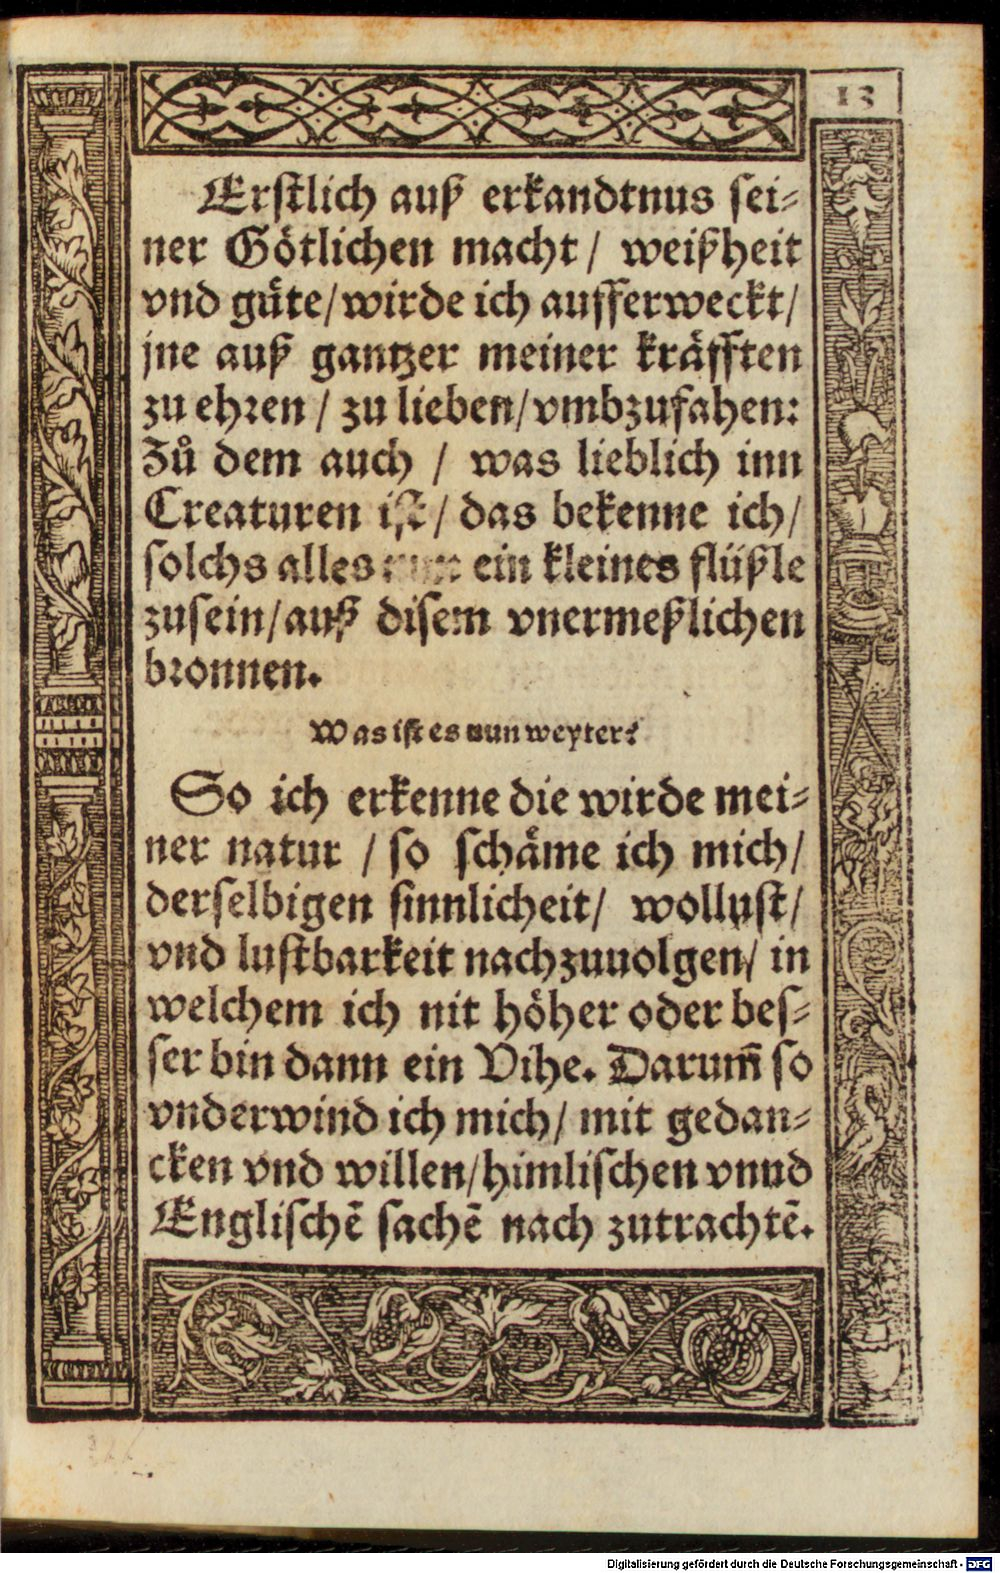 13
Erstlich auß erkandtnus sei-
ner Götlichen macht / weißheit
vnd gůte / wirde ich aufferweckt /
jne auß gantzer meiner kräfften
zu ehren / zu lieben / vmbzufahen:
Zů dem auch / was lieblich inn
Creaturen ist / das bekenne ich /
solchs alles nur ein kleines flüßle
zusein / auß disem vnermeßlichen
bronnen.
Was ist es nun weyter?
So ich erkenne die wirde mei-
ner natur / so schäme ich mich /
derselbigen sinnlicheit / wollust /
vnd lustbarkeit nachzuuolgen / in
welchem ich nit höher oder bes-
ser bin dann ein Vihe. Darum̄ so
vnderwind ich mich / mit gedan-
cken vnd willen / himlischen vnnd
Englischē sachē nach zutrachtē.
Digitalisierung gefördert durch die Deutsche Forschungsgemeinschaft - DFG